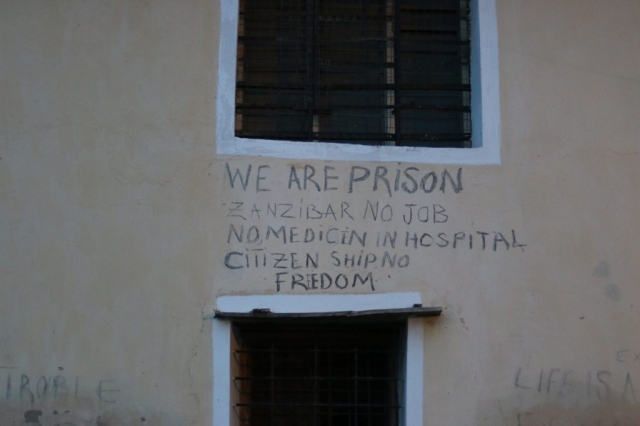 WE ARE PRISON
ZANZIBAR NO JOB
NO, MEDICIN IN HOSPITAL
CITIZEN SHIP.NO
FREDOM
TROBLE
EX
LIFE IS A